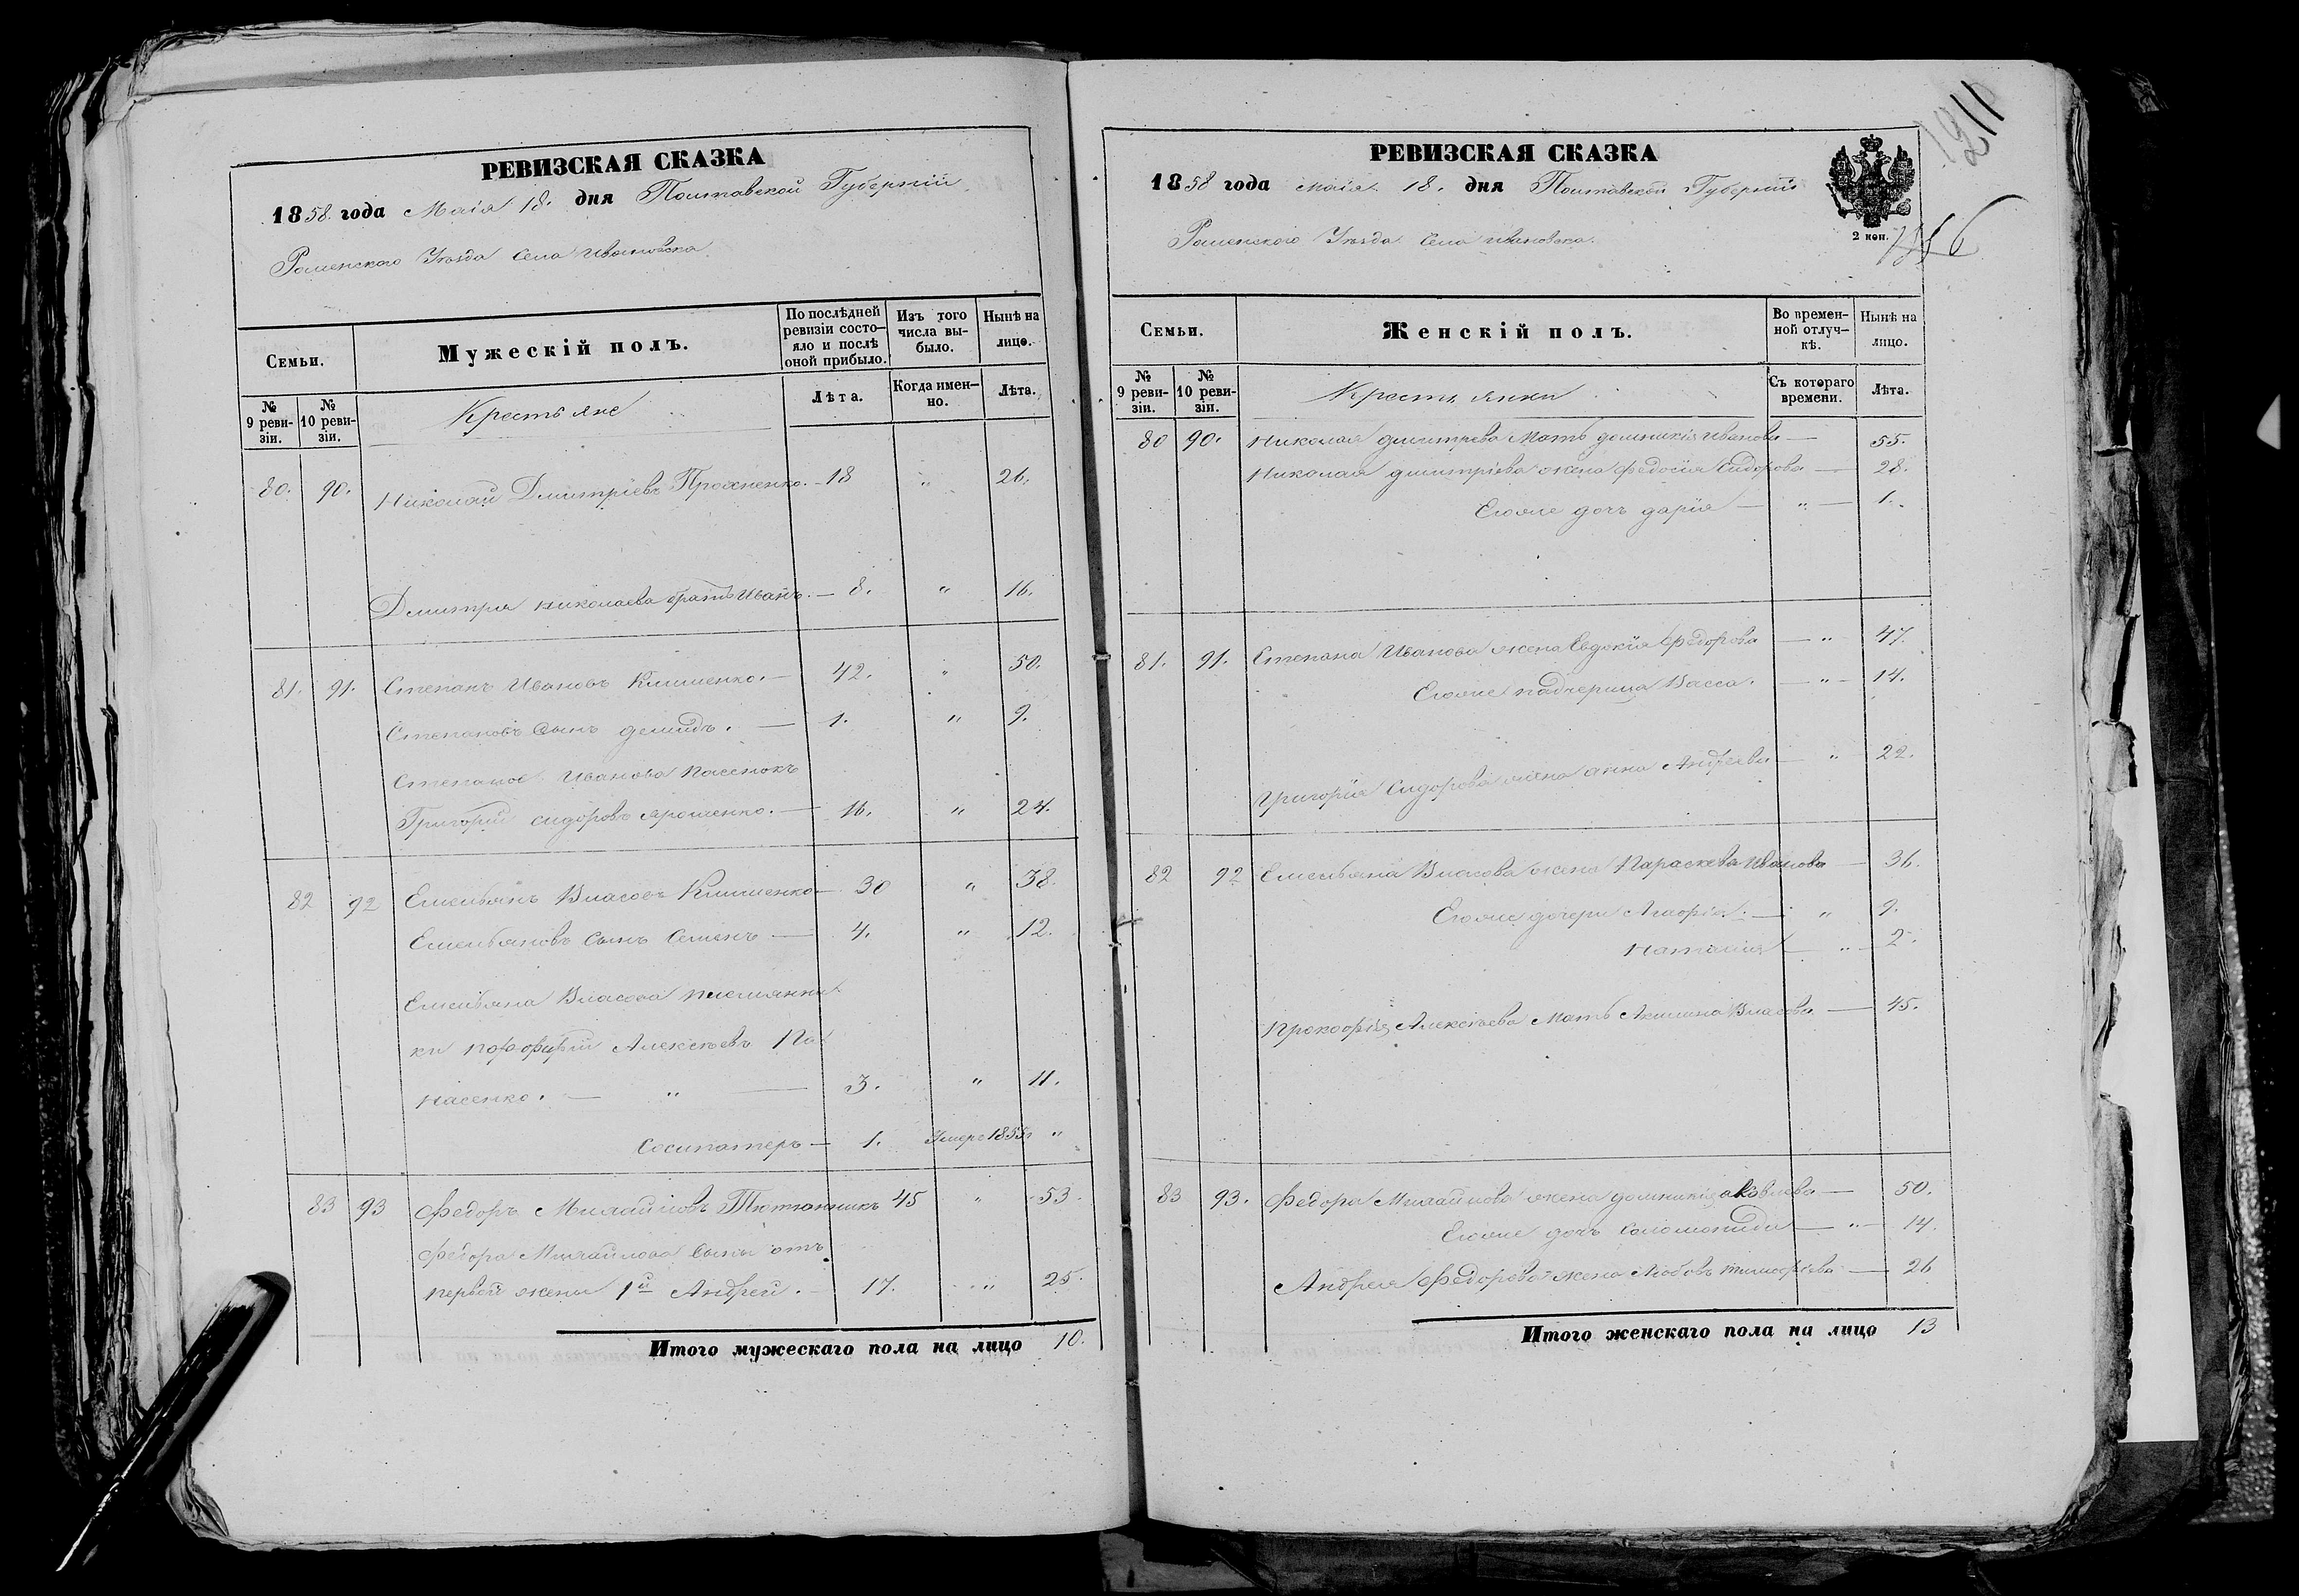 РЕВИЗСКАЯ СКАЗКА
1858 года Маія 18. дня Полтавской Губерніи
Роменского Уезда Села Ивановска
Семьи.
Мужескій полъ.
По послѣдней ревизіи состо—яло и послѣ оной прибыло.
Изъ того числа вы-было.
Нынѣ на лицо.
№ 9 реви-зіи.
№ 10 реви-зіи.
Крестьяне
Лѣта.
Когда имен—но.
Лѣта.
80. 90. Николай Дмитріевъ - 18 " 26.
Дмитрія Николаева братъ Иванъ. — 8. " 16.
81. 91. Степанъ Ивановъ Клименко. — 42. " 50.
Степановъ Сынъ Демидъ. — 1. " 9.
Иванова Пасенокъ
Григорій Сидоровъ Ярошенко. — 16. " 24.
82 92 Емельянъ Власовъ Клименко — 30 " 38.
Емельяновъ Сынъ Семенъ — 4. " 12.
Емельяна Власова племянни
ки Алексѣевъ Па
насенко. — " — 3. " 11.
Сосипатеръ — 1. Умеръ 1855 "
83 93 Федоръ Михайловъ Тютюнникъ 45 " 53.
Федора Михайлова Сыны отъ
первой жены 1й Андрей. — 17. " 25.
Итого мужескаго пола на лицо 10.
1211
РЕВИЗСКАЯ СКАЗКА
1858 года Маія 18. дня Полтавской Губерніи
2 коп.
Роменского Уезда Села Ивановска.
Семьи.
Женскій полъ.
Во времен-ной отлуч-кѣ.
Нынѣ на лицо.
№ 9 реви-зіи.
№ 10 реви-зіи.
Крестьянки
Съ котораго времени.
Лѣта.
80 90. Николая Дмитрева Мать Домникія Иванова — 55.
Николая Дмитріева жена Федосія Сидорова — 28.
Егоже дочь Дарія — " — 1.
81. 91. Степана Иванова жена Евдокія Федорова — " 47.
Егоже падчерица Васса. — " — 14.
Григорія Сидорова жена Анна Андреева — " 22.
82 92 Емельяна Власова жена Параскева Иванова — 36.
Егоже дочери Агафія. — " 9.
Наталія — " — 2.
Прокофія Алексѣева Мать Акилина Власова — 45.
83 93. Федора Михайлова жена Домникія Яковлева — 50.
Егоже дочь Соломонида — " — 14.
Андрея Федорова жена Любовь Тимофеева — 26
Итого женскаго пола на лицо 13